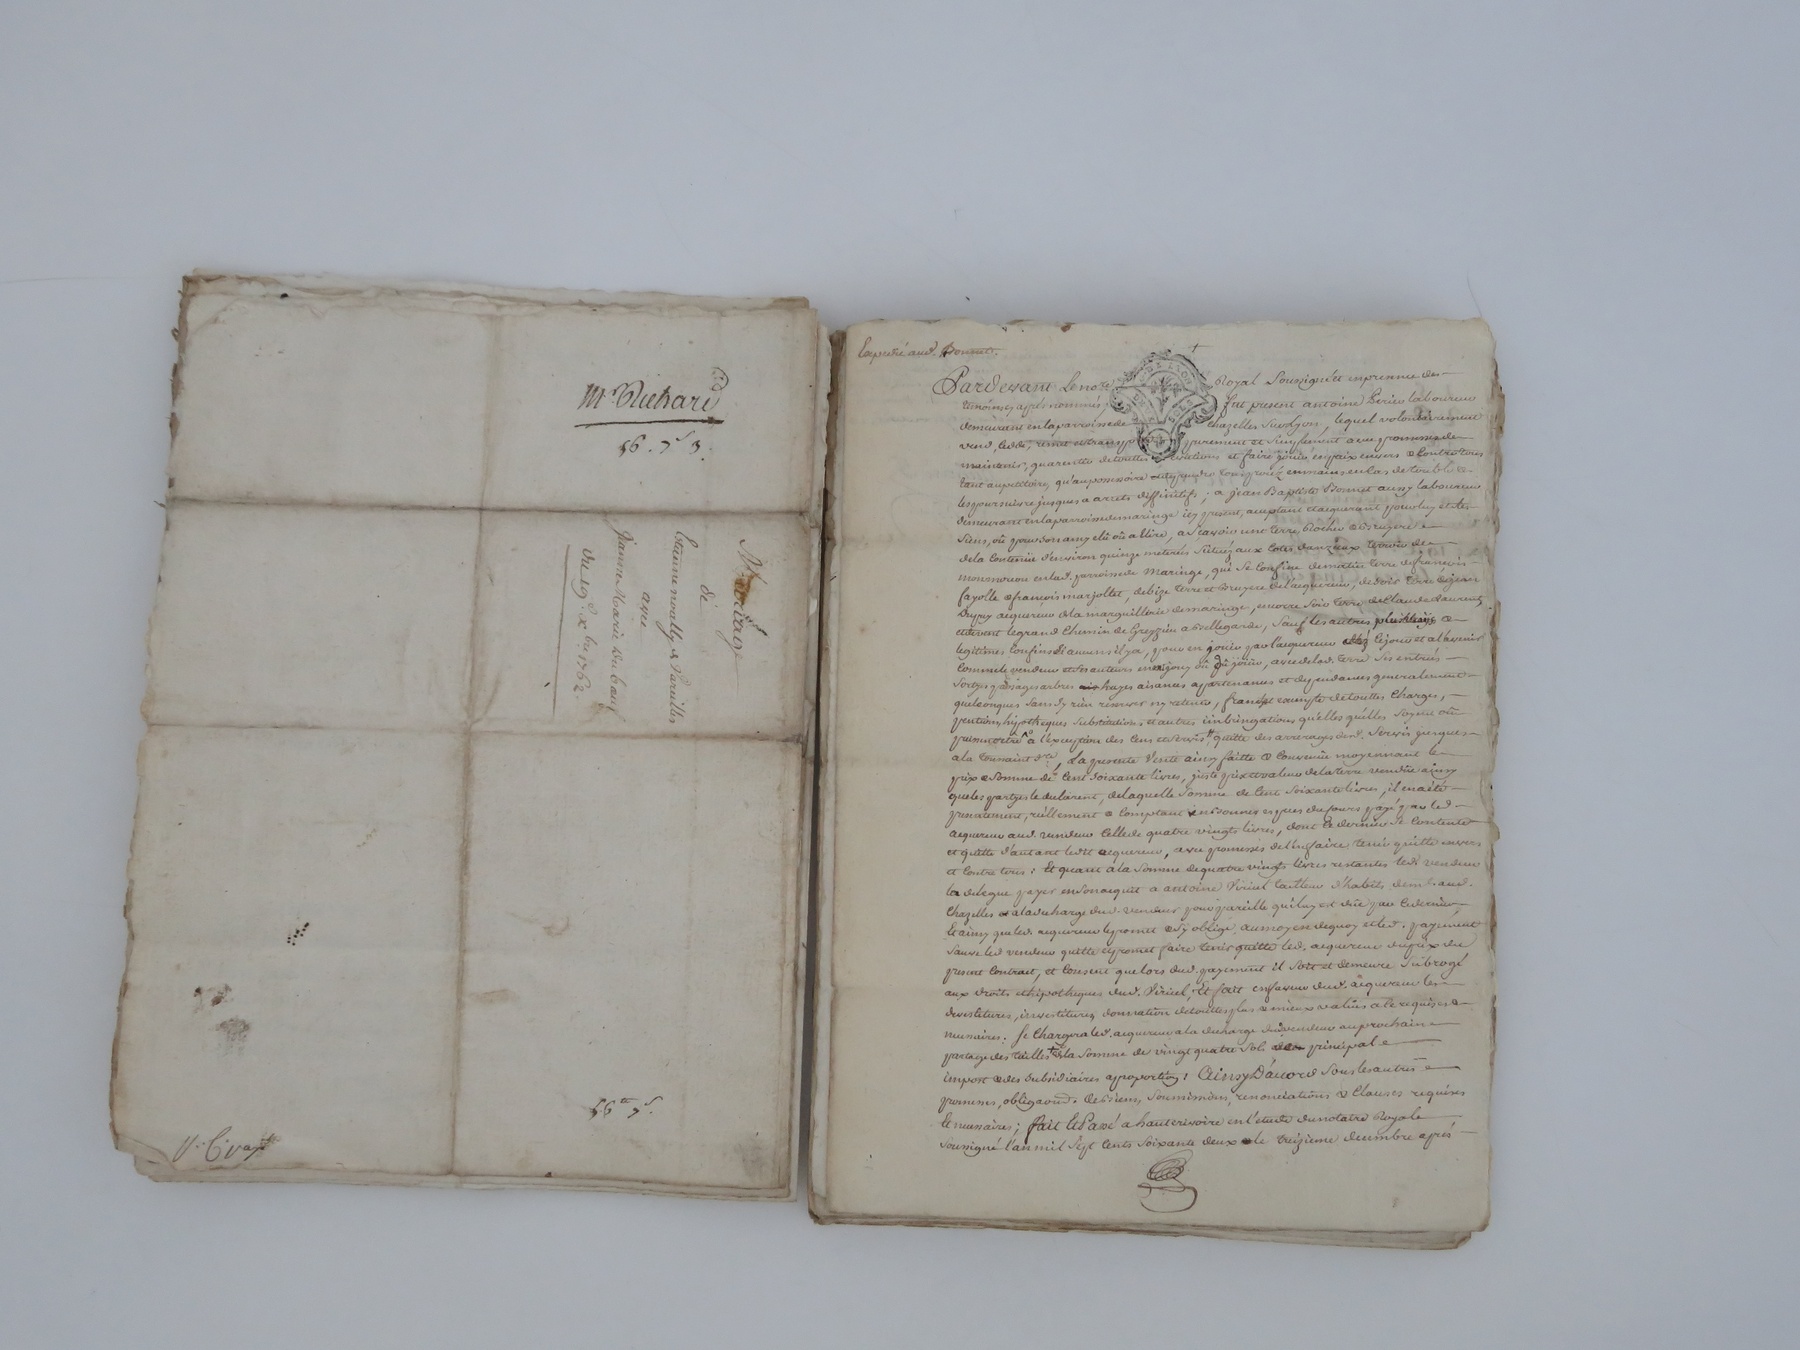 Mr Richard
Mariage
de
Etienne noally & Pareilles
avec
Jeanne Marie Dubauf
du 19e Xbre 1762
expedié aud. Bonnet.
Pardevant Le notre Royal Soussigné et en presence des
temoins apres nommés fut present antoine laboureur
demeurant en la parroisse de Chazelles Sur Lyon, lequel volontairement
vend, cede, remet et transporte purement et Simplement avec promesse de
maintenir, garentir de touttes evictions et faire jouir en paix envers & contre tous
tant au petitoire, qu'au possessoire en cas de trouble &
les poursuivre jusques a arrets diffinitifs; a jean Baptiste Bonnet aussy laboureur
demeurant en la parroisse de maringe icy present, acceptant et acquerant pour luy et les
Siens, où pour son amy elû où a Elire, a Sçavoir une terre Rocher & bruyere
de la Contenüe d'environ quinze meterés Scituéz aux Cotes danzieux terroir de
en lad. parroisse de Maringe, qui Se Confine de matin terre de françois
fayolle & françois marjollet, de bize terre et Bruyere de l'acquereur, de Soir terre de jean
Dupuy acquereur de la marguillerie de maringe, encorre Soir terre de Claude Laurent,
et de vent le grand Chemin de Greyzieu a Bellegarde, Sauf les autres plus
legitimes Confins Si aucuns il y a, pour en jouir par l'acquereur le jour et a l'avenir
Comme le vendeur et Ses auteurs en ont jouy où dû joüir, avec de lad. terre Ses entrées
Sorties passages arbres hayes aisances appartenances et dependances generalement
quelconques Sans Sy rien reserver ny retenir, franche et exempte de touttes Charges,
pentions hypotheques Substitutions et autres quelles quelles Soyent où
puissent être, a l'exception des Cens et Servis quitte des arrerages desd. Servis jusques
a la toussaint dre, La presente Vente ainsy faitte & Convenüe moyennant le
prix & Somme de Cent Soixante livres, juste prix et valeur de la terre vendüe ainsy
que les partyes le declarent, de laquelle Somme de Cent Soixante livres, il en a été
presentement, reellement & Comptant en bonnes especes du Cours payé par led
acquereur aud. vendeur Celle de quatre vingts livres, dont Ce dernier Se Contente
et quitte d'autant ledit acquereur, avec promesses de l'en faire tenir quitte envers
et Contre tous; Et quant a la Somme de quatre vingts livres restantes led. vendeur
la delegue payer en Son acquit a antoine Viricel tailleur d'habits demt. aud.
Chazelles a la decharge dud. vendeur pour pareille qu'il luy est düe par Ce dernier
Et ainsy que led. acquereur le promet & Sy oblige, au moyen de quoy et led. payement
Sauve led vendeur quitte et promet faire tenir quitte led. acquereur du prix du
present Contrat, et Consent que lors dud. payement il Soit et demeure Subrogé
aux droits et hipotheques dud. Viricel, Et fait en faveur dud. acquereur les
devestitures, investitures, donnation de touttes plus & mieux values a Ce requises &
necessaires. Se Chargera led. acquereur a la decharge dud vendeur au prochain
partage des tailles de la Somme de vingt quatre Sols principal &
impost & des Subsidiaires a proportion; Ainsy D'acord Sous les autres
promesses, obligaons. des biens, Soumissions, renonciations & Clauses requises
& necessaires; fait & Passé a hauterivoire en l'etude du notaire Royale
Soussigné l'an mil Sept Cents Soixante deux & le treizieme decembre après